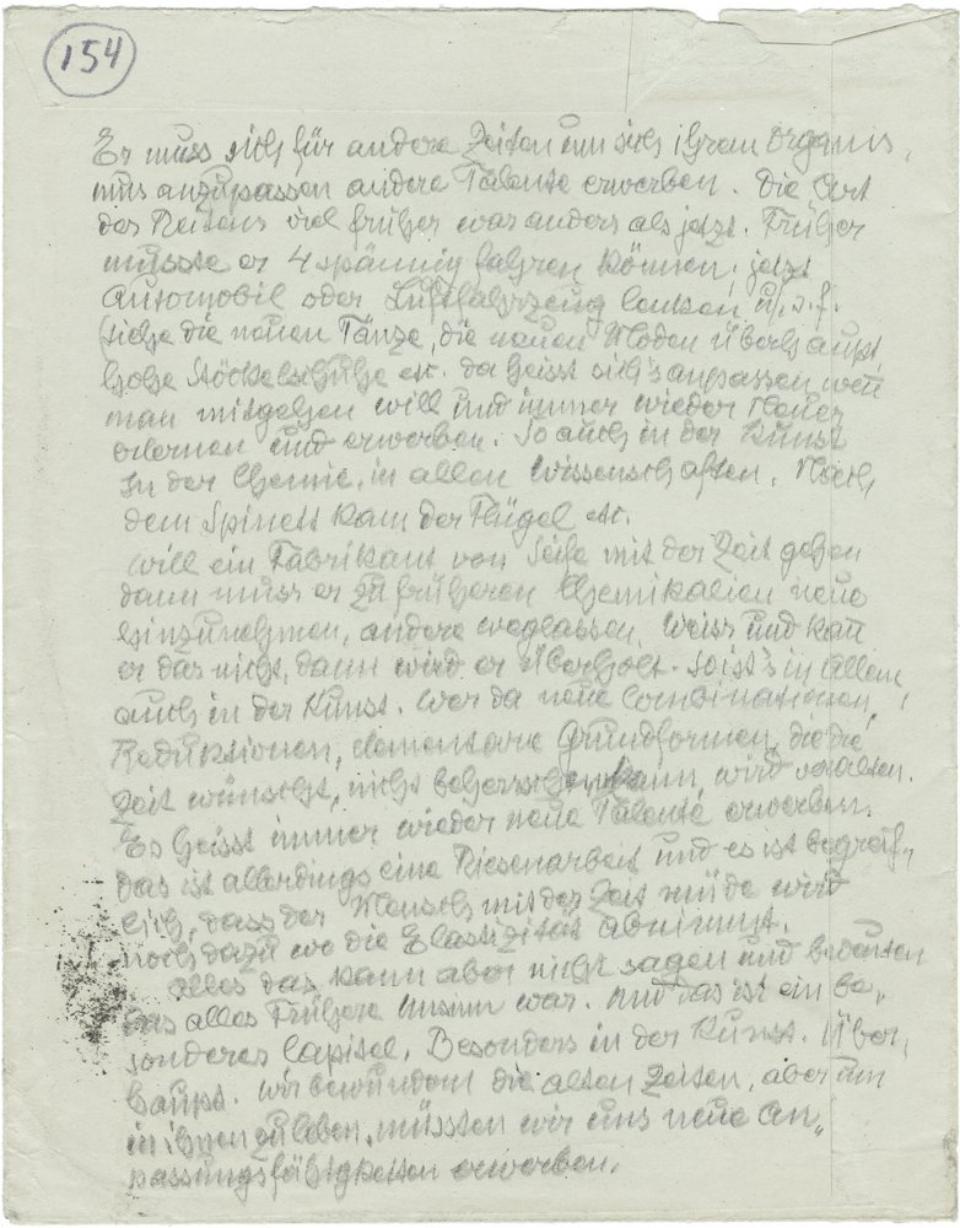 154
Er muss sich für andere Zeiten um sich ihrem Organis,
mus anzupassen andere Talente erwerben. Die Art
des Reitens viel früher war anders als jetzt. Früher
musste er 4 spännig fahren können, jetzt
Automobil oder Luftfahrzeug lenken u. s. f.
Siehe die neuen Tänze, die neuen Moden überhaupt,
hohe Stöckelschuhe etc. da heisst sich's anpassen, weñ
man mitgehen will und immer wieder Neues
erlernen und erwerben. So auch in der Kunst
In der Chemie, in allen Wissenschaften. Nach,
dem Spinett kam der Flügel etc.
Will ein Fabrikant von Seife mit der Zeit gehen
dann muss er zu früheren Chemikalien neue
hinzunehmen, andere weglassen. Weiss und kañ
er das nicht, dann wird er überholt. So ist's in Allem,
auch in der Kunst. Wer da neue Combinationen,
Reduktionen, elementare Grundformen, die die
Zeit wünscht, nicht beherrschen kann, wird veralten.
Es heisst immer wieder neue Talente erwerben.
das ist allerdings eine Riesenarbeit und es ist begreif„
lich, dass der Mensch mit der Zeit müde wird
noch dazu wo die Elastizität abnimmt.
Alles das kann aber nicht sagen und bedeuten
das alles Frühere Unsinn war. Und das ist ein be„
sonderes Capitel. Besonders in der Kunst. Über„
haupt. Wir bewundern die alten Zeiten, aber um
in ihnen zu leben, müssten wir uns neue An„
passungsfähigkeiten erwerben.